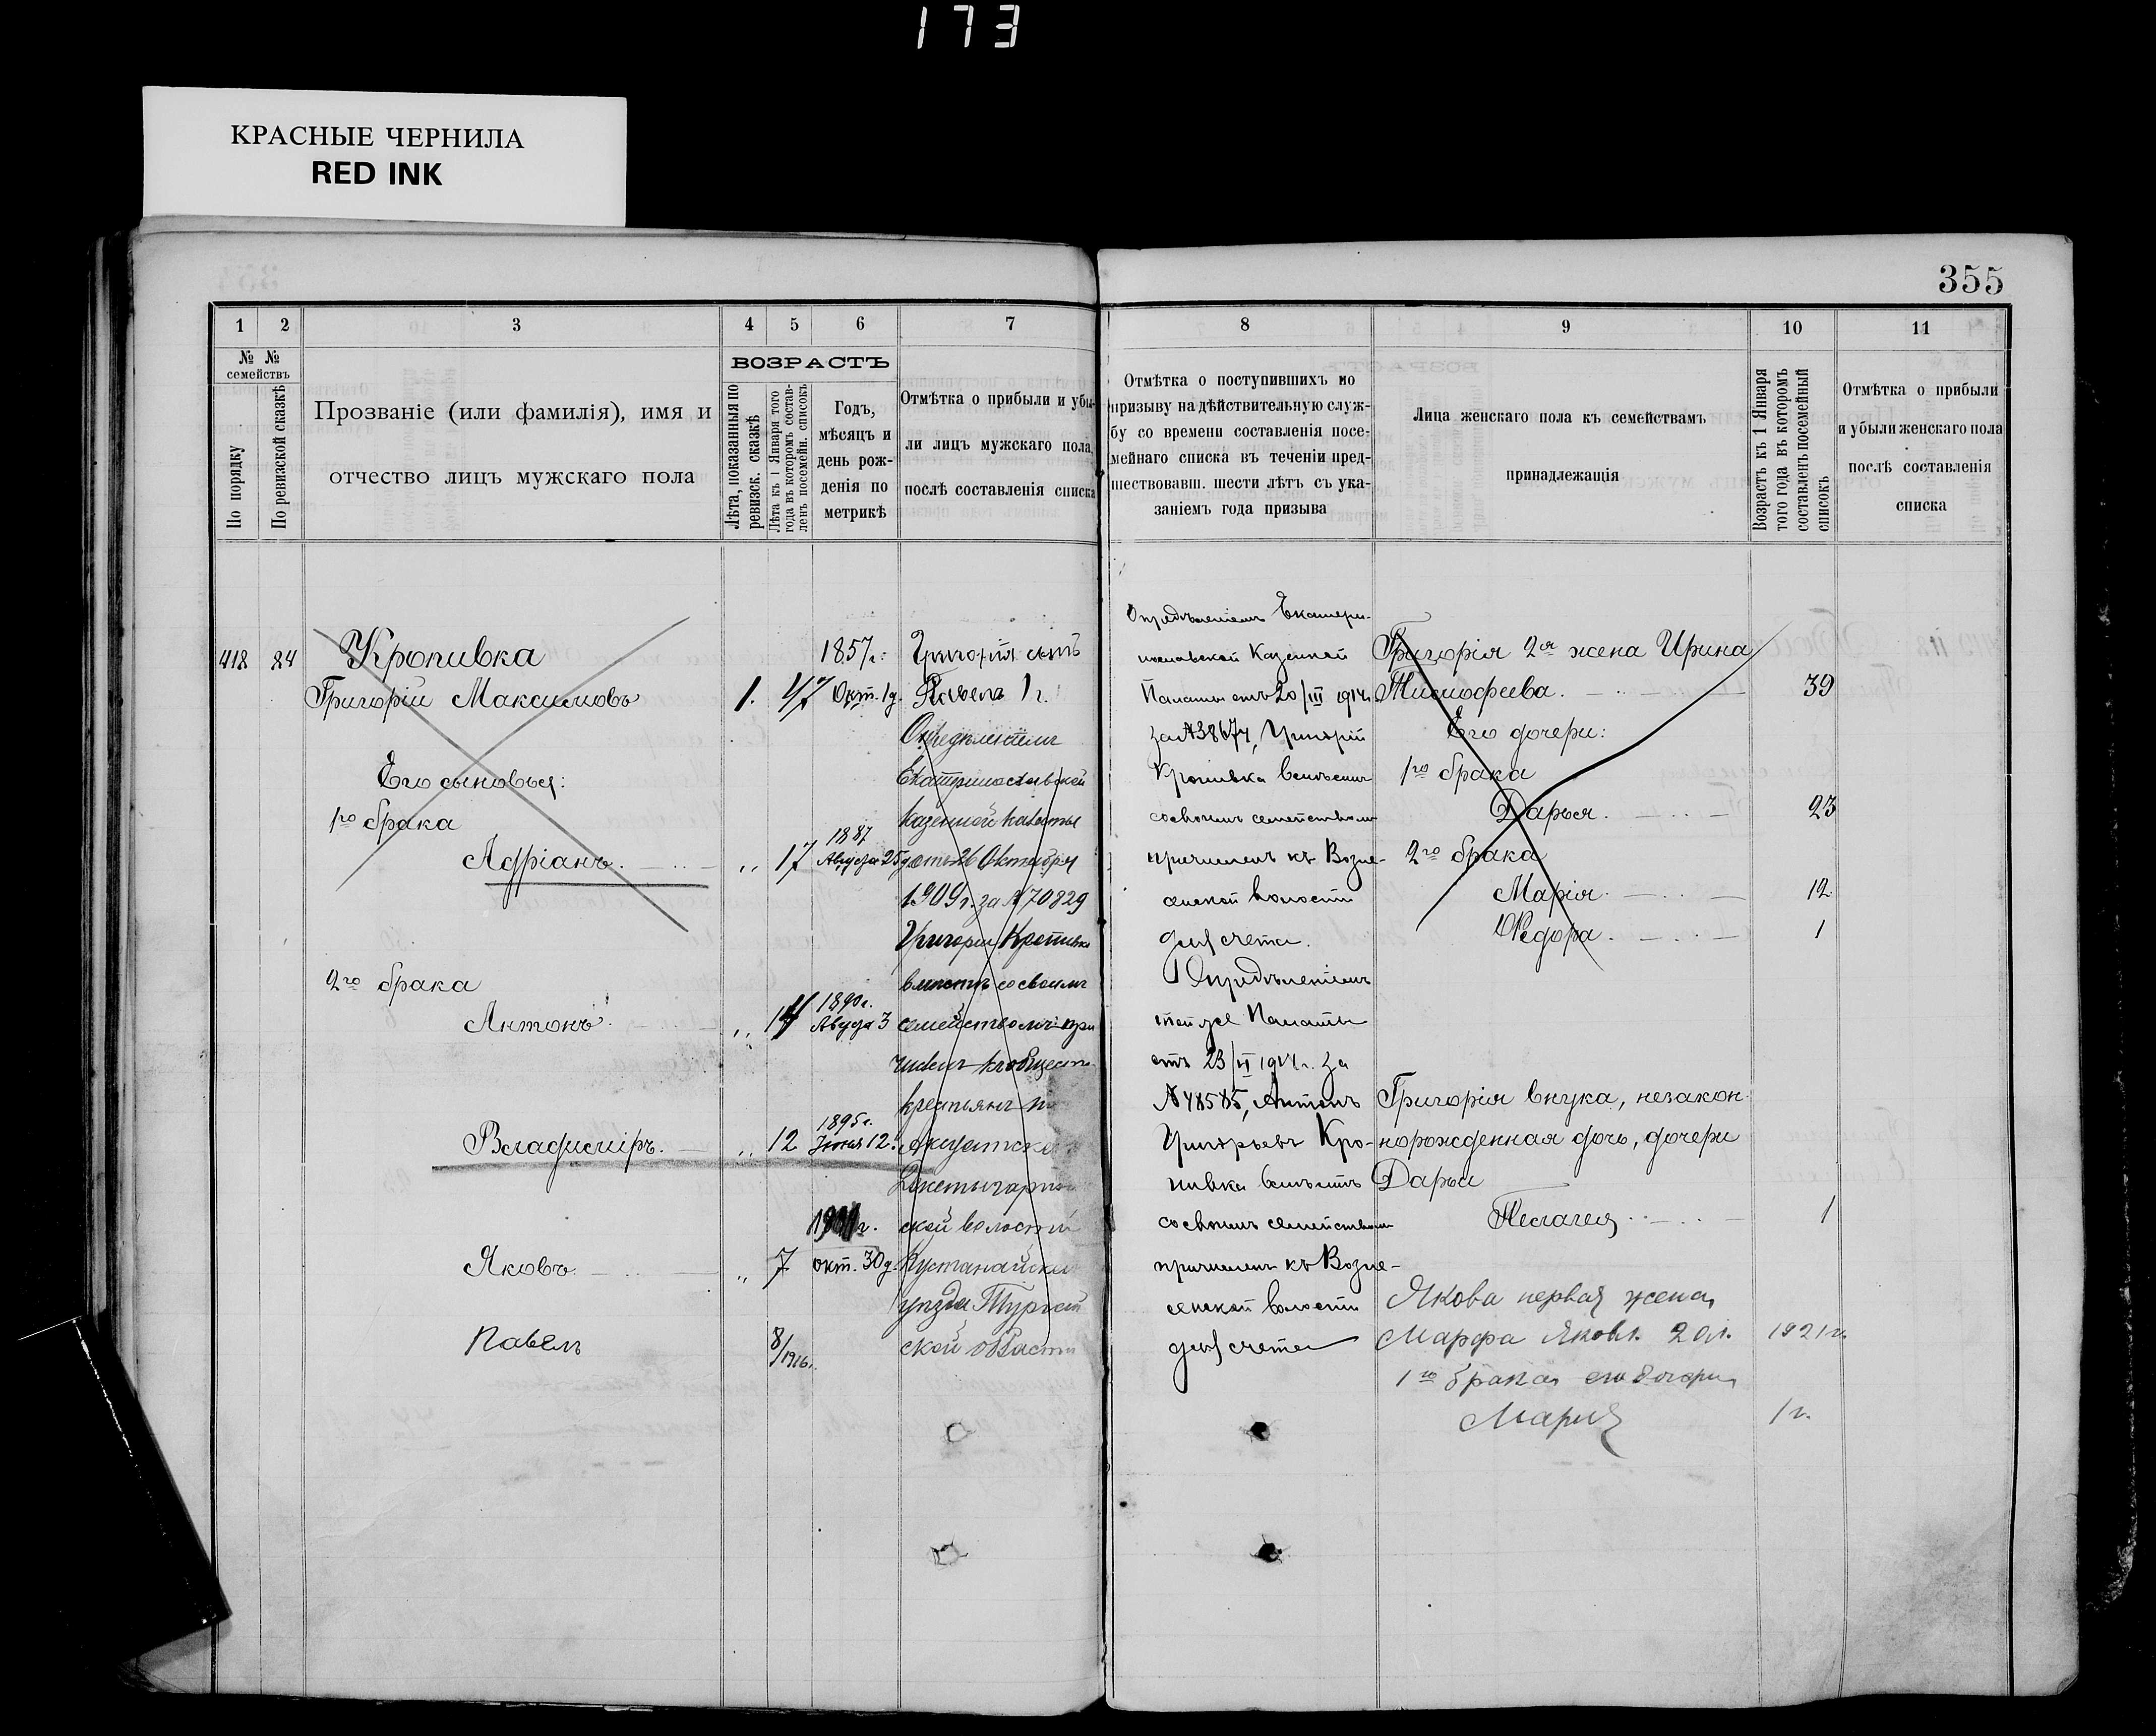 173
КРАСНЫЕ ЧЕРНИЛА
RED INK
355
1 2 3 4 5 6 7
№ № семействъ
По порядку
По ревизской сказкѣ
Прозваніе (или фамилія), имя и
отчество лицъ мужскаго пола
ВОЗРАСТЪ
Лѣта, показанныя по
ревизск. сказкѣ
Лѣта къ 1 Января того
года въ которомъ состав-
ленъ посемейн. списокъ
Годъ,
мѣсяцъ и
день рож-
денія по
метрикѣ
Отмѣтка о прибыли и убы-
ли лицъ мужскаго пола,
послѣ составленія списка
418 84 Кропивка
Григорій Максимовъ 1. 47
1857г.
Окт. 1 д.
Его сыновья:
1го брака
Адріанъ. „ 17
1887
Августа 25 д
2го брака
Антонъ „ 14
1890г.
Августа 3
Владиміръ. „ 12
1895г.
Іюня 12.
Яковъ. „ 7
окт. 30 д.
Павелъ 8/1906г.
Григорія сынъ
Павелъ 1 г.
Опредѣленіемъ
Екатеринославской
Казенной Палаты
отъ 26 Октября
1909г. за № 70829
Григорій Кропивка
вмѣстѣ со своимъ
семействомъ при
численъ къ обществу
крестьянъ
ской волости
Кустанайска
уѣзда Тургай
ской области
8 9 10 11
Отмѣтка о поступившихъ по
призыву на дѣйствительную служ-
бу со времени составленія посе-
мейнаго списка въ теченіи пред-
шествовавш. шести лѣтъ съ ука-
заніемъ года призыва
Лица женскаго пола къ семействамъ
принадлежащія
Возрастъ къ 1 Января
того года въ которомъ
составленъ посемейный
списокъ
Отмѣтка о прибыли
и убыли женскаго пола
послѣ составленія
списка
Опредѣленіемъ Екатери-
нославской Казенной
Палаты отъ 20/III 1914г.
за № 38674, Григорій
Кропивка вмѣстѣ
со своимъ семействомъ
причисленъ къ Возне-
сенской волости
для счета.
Опредѣленіемъ
той же Палаты
отъ 23/VI 1914г. за
№ 48585, Антонъ
Григорьевъ Кро-
пивка вмѣстѣ
со своимъ семействомъ
причисленъ къ Возне-
сенской волости
для счета
Григорія 2я жена Ирина
Тимофеева. 39
Его дочери:
1го брака
Дарья. 23
2го брака
Марія. 12
Ѳедора. 1
Григорія внука, незакон-
норожденная дочь, дочери
Дарьи
Пелагея 1
Якова первая жена
Марфа Яковл. 20 л. 1921 г.
1го брака его дочери
Мария 1 г.